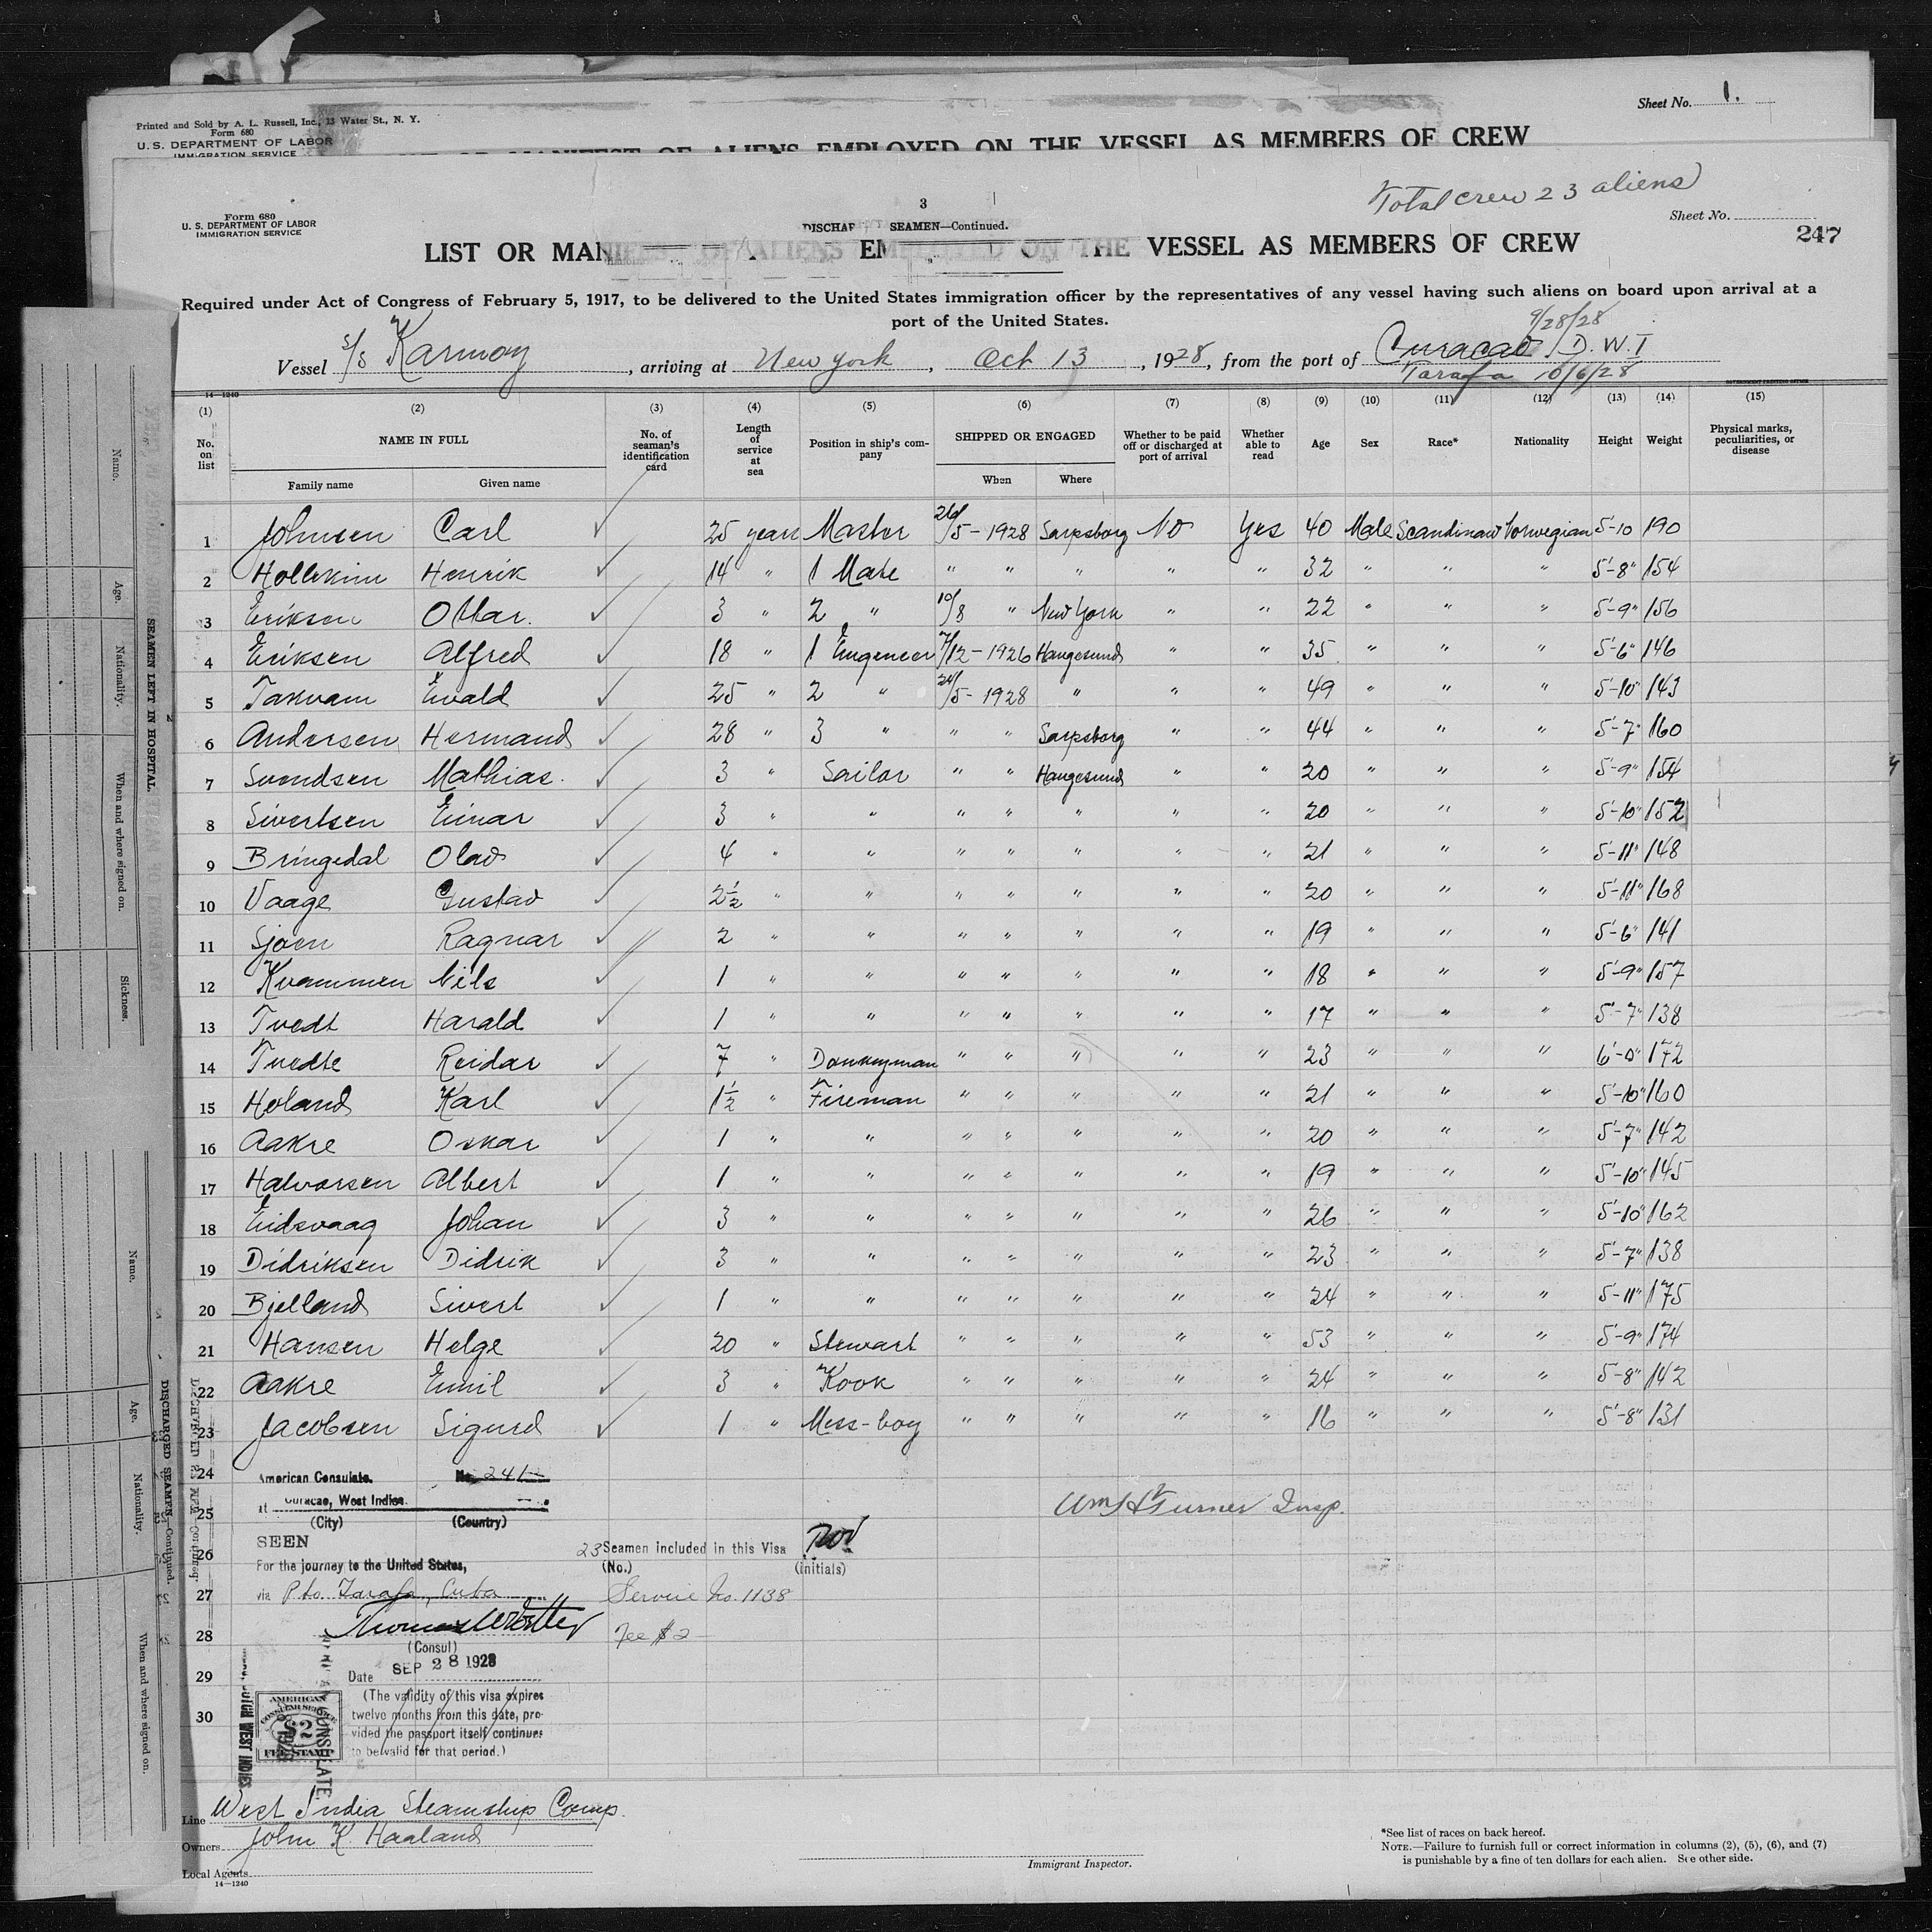 Sheet No. 1.
Printed and Sold by A. L. Russell, Inc., 13 Water St., N. Y.
Form 680
U. S. DEPARTMENT OF LABOR
IMMIGRATION SERVICE
MANIFEST OF ALIENS EMPLOYED ON THE VESSEL AS MEMBERS OF CREW
Total crew 23 aliens
3
Form 680
U. S. DEPARTMENT OF LABOR
IMMIGRATION SERVICE
SEAMEN—Continued.
Sheet No.
247
LIST OR MANIFEST OF ALIENS EMPLOYED ON THE VESSEL AS MEMBERS OF CREW
Required under Act of Congress of February 5, 1917, to be delivered to the United States immigration officer by the representatives of any vessel having such aliens on board upon arrival at a
port of the United States.
9/28/28
Vessel S/S Karmoy, arriving at New York, Oct 13, 1928, from the port of Curacao D. W. I
Tarafa 10/6/28
14—1240
(1) (2) (3) (4) (5) (6) (7) (8) (9) (10) (11) (12) (13) (14) (15)
No. on list NAME IN FULL No. of seaman's identification card Length of service at sea Position in ship's company SHIPPED OR ENGAGED Whether to be paid off or discharged at port of arrival Whether able to read Age Sex Race* Nationality Height Weight Physical marks, peculiarities, or disease
Family name Given name When Where
1 Johnsen Carl ✓ 25 years Master 26/5 - 1928 Sarpsborg No Yes 40 Male Scandinav Norwegian 5-10 190
2 Henrik ✓ 14 " 1 Mate " " " " " 32 " " " 5'-8" 154
3 Eriksen Ottar. ✓ 3 " 2 " 10/8 " New York " " 22 " " " 5'-9" 156
4 Eriksen Alfred ✓ 18 " 1 Engeneer 7/12 - 1926 Haugesund " " 35 " " " 5'-6" 146
5 Takvam Ewald ✓ 25 " 2 " 24/5 - 1928 " " " 49 " " " 5'-10" 143
6 Andersen Hermand ✓ 28 " 3 " " " Sarpsborg " " 44 " " " 5'-7" 160
7 Svendsen Mathias. ✓ 3 " Sailor " " Haugesund " " 20 " " " 5'-9" 154
8 Sivertsen Einar ✓ 3 " " " " " " " 20 " " " 5'-10" 152
9 Bringedal Olav ✓ 4 " " " " " " " 21 " " " 5'-11" 148
10 Vaage Gustav ✓ 2½ " " " " " " " 20 " " " 5'-11" 168
11 Sjoen Ragnar ✓ 2 " " " " " " " 19 " " " 5'-6" 141
12 Kvammen Nils ✓ 1 " " " " " " " 18 " " " 5'-9" 157
13 Tvedt Harald ✓ 1 " " " " " " " 17 " " " 5'-7" 138
14 Tvedte Reidar ✓ 7 " Donkeyman " " " " " 23 " " " 6'-0" 172
15 Holand Karl ✓ 1½ " Fireman " " " " " 21 " " " 5'-10" 160
16 Aakre Oskar ✓ 1 " " " " " " " 20 " " " 5'-7" 142
17 Halvorsen Albert ✓ 1 " " " " " " " 19 " " " 5'-10" 145
18 Eidsvaag Johan ✓ 3 " " " " " " " 26 " " " 5'-10" 162
19 Didriksen Didrik ✓ 3 " " " " " " " 23 " " " 5'-7" 138
20 Bjelland Sivert ✓ 1 " " " " " " " 24 " " " 5'-11" 175
21 Hansen Helge ✓ 20 " Stewart " " " " " 53 " " " 5'-9" 174
22 Aakre Emil ✓ 3 " Kook " " " " " 24 " " " 5'-8" 142
23 Jacobsen Sigurd ✓ 1 " Mess-boy " " " " " 16 " " " 5'-8" 131
24 American Consulate. No. 241
25 at Curacao, West Indies.
(City) (Country)
Wm H Turner Insp.
26 SEEN
23 Seamen included in this Visa
For the journey to the United States, (No.) (initials)
27 via Pto. Tarafa, Cuba Service No. 1138
28 Fee $2
(Consul)
29 Date SEP 28 1928
30 (The validity of this visa expires
twelve months from this date, pro-
vided the passport itself continues
to be valid for that period.)
AMERICAN
CONSULAR SERVICE
$2
FEE STAMP
WEST INDIES
CONSULATE
Line West India Steamship Comp.
Owners John K. Haaland
Local Agents
14—1240
Immigrant Inspector.
*See list of races on back hereof.
NOTE.—Failure to furnish full or correct information in columns (2), (5), (6), and (7)
is punishable by a fine of ten dollars for each alien. See other side.
SEAMEN LEFT IN HOSPITAL.
Name.
Age.
Nationality.
When and where signed on.
Sickness.
DISCHARGED SEAMEN—Continued.
Name.
Age.
Nationality.
When and where signed on.